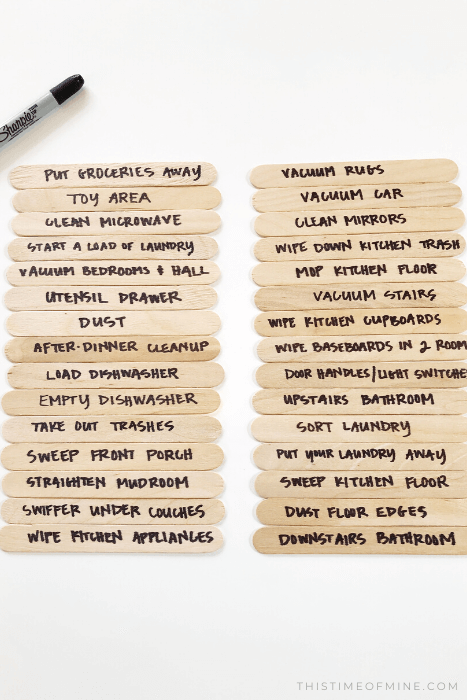 Sharpie
PUT GROCERIES AWAY
TOY AREA
CLEAN MICROWAVE
START A LOAD OF LAUNDRY
VACUUM BEDROOMS & HALL
UTENSIL DRAWER
DUST
AFTER-DINNER CLEANUP
LOAD DISHWASHER
EMPTY DISHWASHER
TAKE OUT TRASHES
SWEEP FRONT PORCH
STRAIGHTEN MUDROOM
SWIFFER UNDER COUCHES
WIPE KITCHEN APPLIANCES
VACUUM RUGS
VACUUM CAR
CLEAN MIRRORS
WIPE DOWN KITCHEN TRASH
MOP KITCHEN FLOOR
VACUUM STAIRS
WIPE KITCHEN CUPBOARDS
WIPE BASEBOARDS IN 2 ROOM
DOOR HANDLES/LIGHT SWITCHE
UPSTAIRS BATHROOM
SORT LAUNDRY
PUT YOUR LAUNDRY AWAY
SWEEP KITCHEN FLOOR
DUST FLOOR EDGES
DOWNSTAIRS BATHROOM
THISTIMEOFMINE.COM